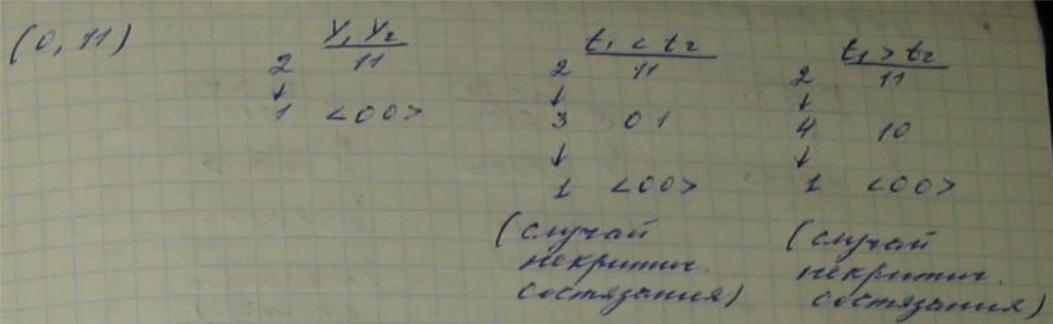 (0, 11)
Y₁ Y₂
2 11
↓
1 <00>
t₁ < t₂
2 11
↓
3 01
↓
1 <00>
(случай
некритич.
состязания)
t₁ > t₂
2 11
↓
4 10
↓
1 <00>
(случай
некритич.
состязания)